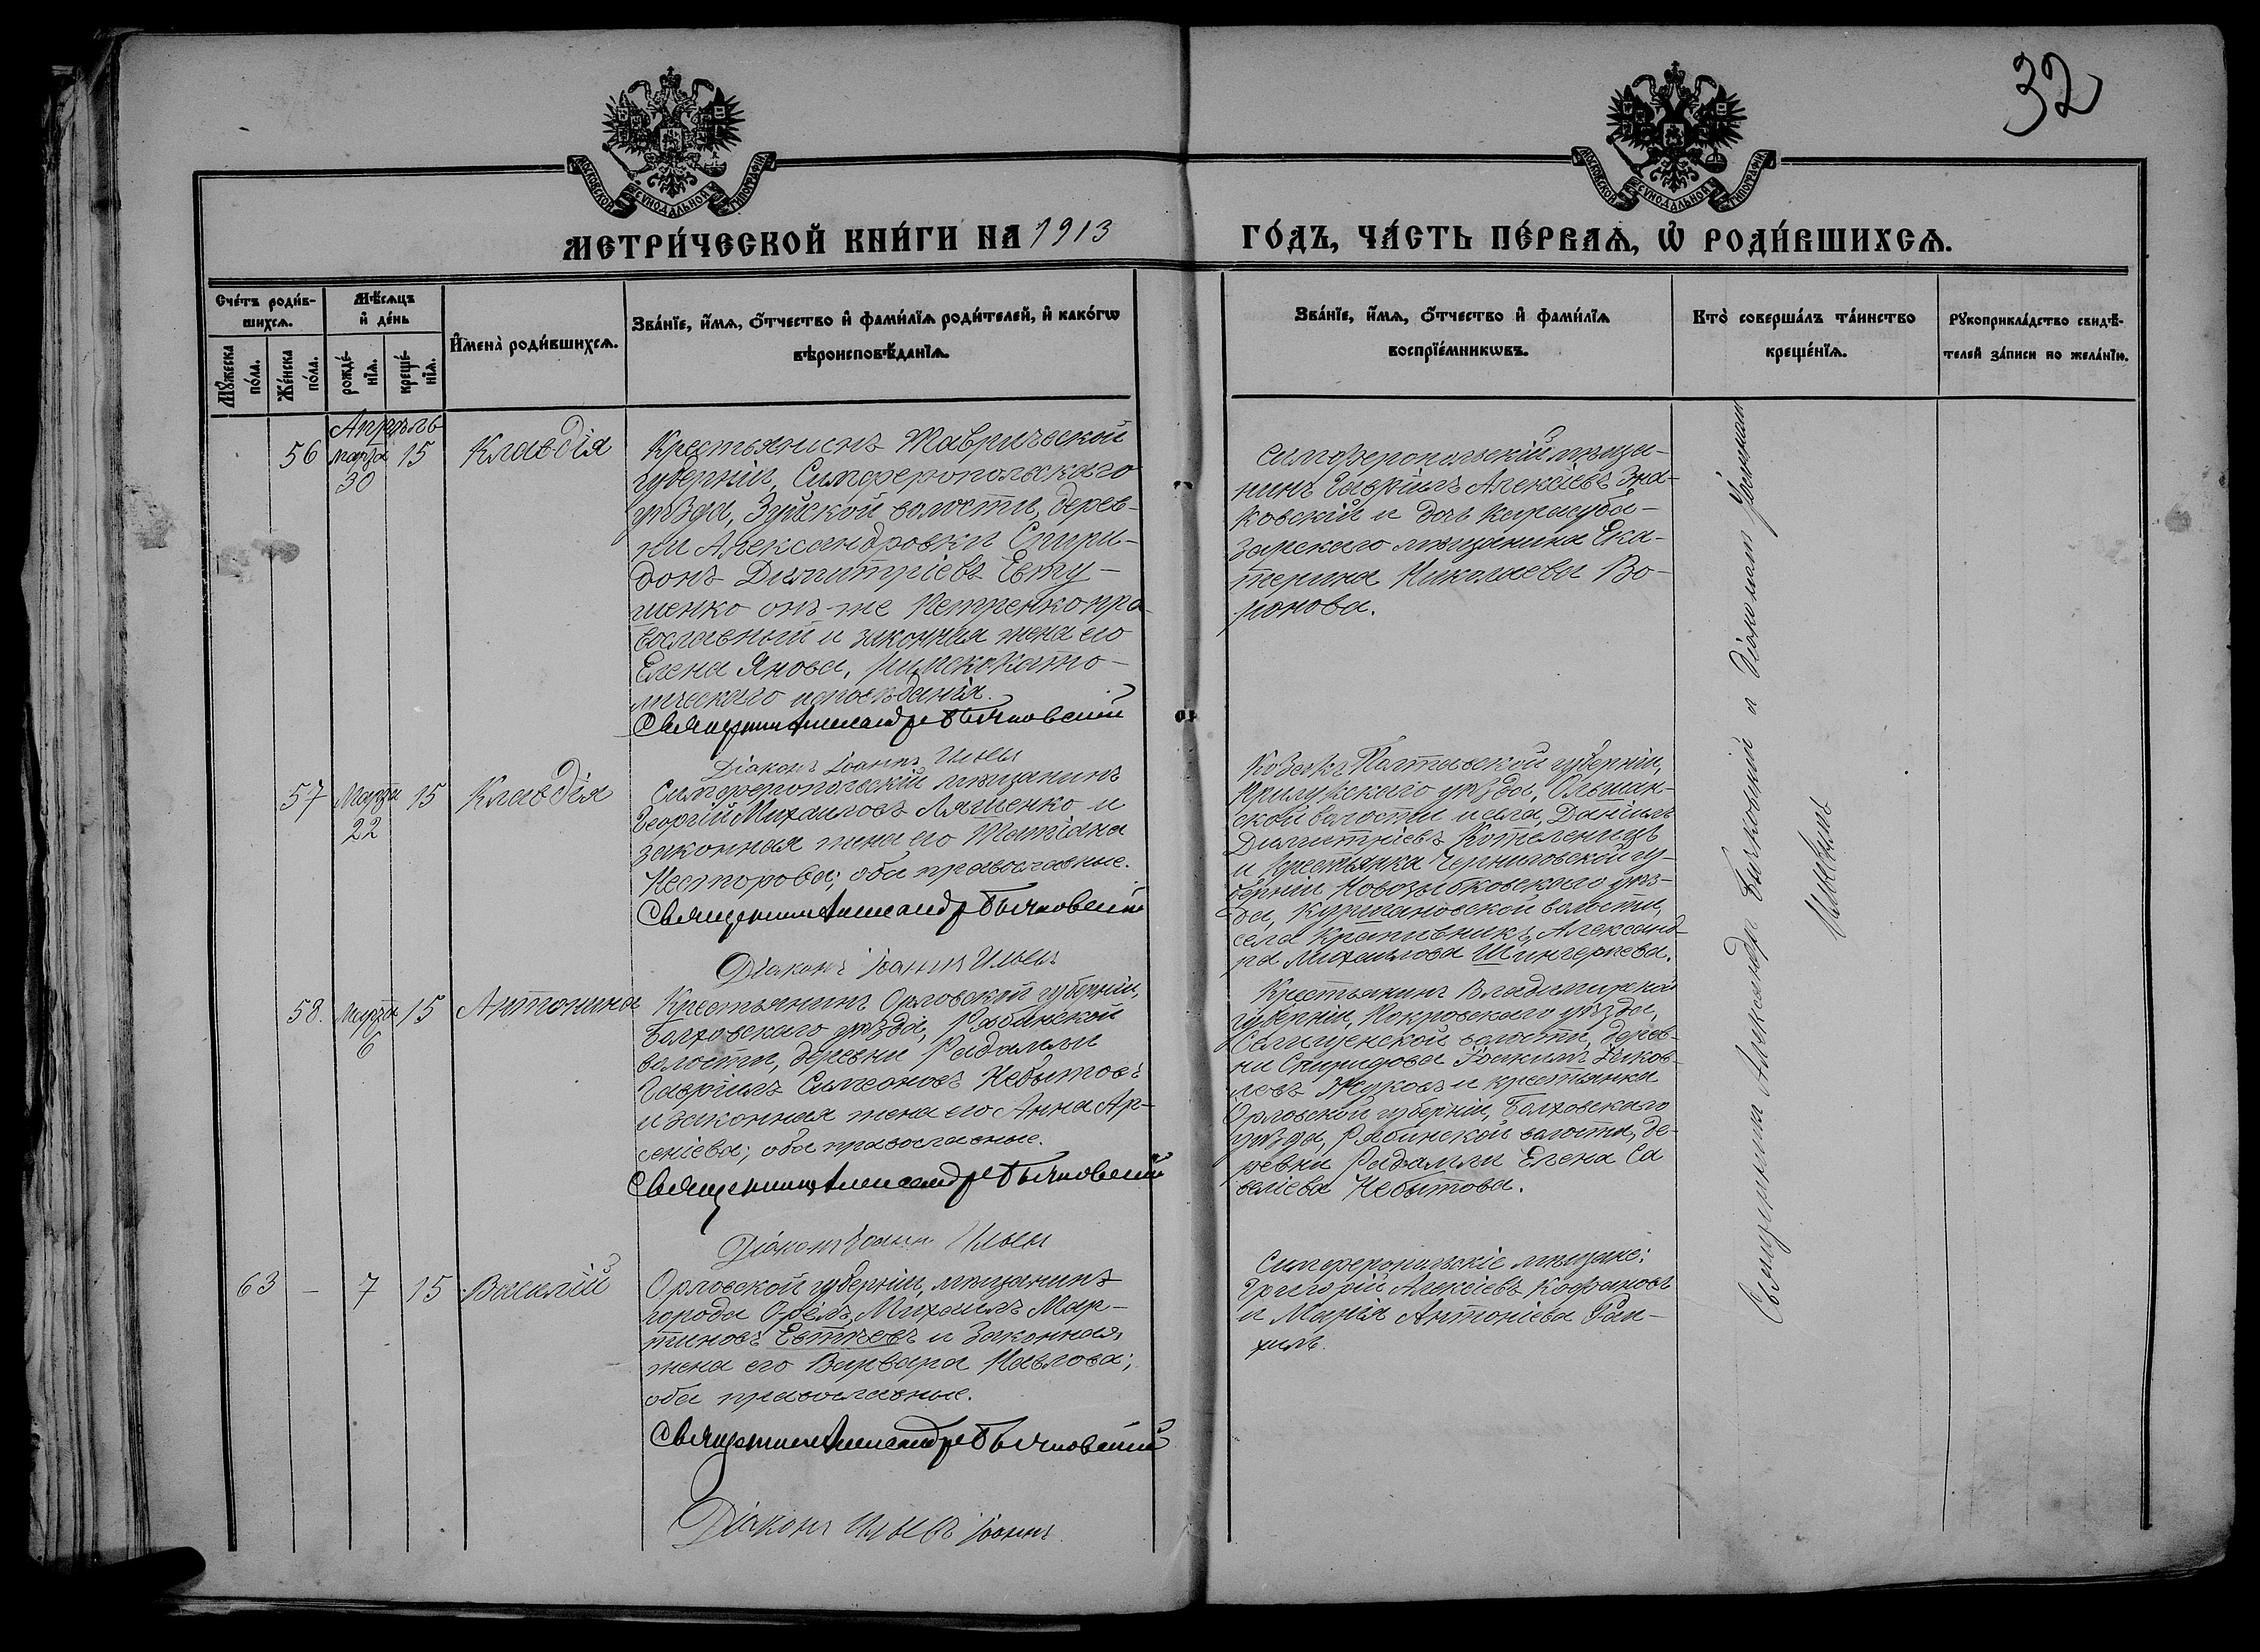 32
МОСКОВСКОЙ СѴНОДАЛЬНОЙ ТИПОГРАФІИ
МОСКОВСКОЙ СѴНОДАЛЬНОЙ ТИПОГРАФІИ
МЕТРИ́ЧЕСКОЙ КНИ́ГИ НА 1913
ГО́ДЪ, ЧА́СТЬ ПЕ́РВАѦ, Ѡ҆ РОДИ́ВШИХСѦ.
Сче́тъ роди́в-
шихсѧ.
Мѣ́сѧцъ
и҆ де́нь
Мꙋ́жеска
по́ла.
Же́нска
по́ла.
рожде́-
нїѧ.
креще́-
нїѧ.
И҆мена̀ роди́вшихсѧ.
Зва́нїе, и҆́мѧ, ѻ҆́тчество и҆ фами́лїѧ роди́телей, и҆ како́гѡ
вѣроисповѣ́данїѧ.
Зва́нїе, и҆́мѧ, ѻ҆́тчество и҆ фами́лїѧ
воспрїе́мникѡвъ.
Кто̀ соверша́лъ та́инство
креще́нїѧ.
Рꙋкоприкла́дство свидѣ́-
телей за́писи по жела́нїю.
Апрѣль
56 Марта 15 Клавдія
30
Крестьянинъ Таврической
губерніи, Симферопольскаго
уѣзда, Зуйской волости, дерев-
ни Александровки Спири-
донъ Димитріевъ Евту-
шенко онъ-же Петренко пра-
вославный и законная жена его
Елена Янова, Римскокато-
лическаго исповѣданія.
Священникъ Александръ Бычковскій
Діаконъ Іоаннъ Ильинъ
Симферопольскій мѣща-
нинъ Гавріилъ Алексѣевъ Зна-
ковскій и дочь карасуба-
зарскаго мѣщанина Ека-
терина Николаева Во-
ронова.
57 Марта 15 Клавдія
22
Симферопольскій мѣщанинъ
Георгій Михаиловъ Ляшенко и
законная жена его Татіана
Несторова; оба православные.
Священникъ Александръ Бычковскій
Діаконъ Іоаннъ Ильинъ
Козакъ Полтавской губерніи,
Прилукскаго уѣзда, Ольшан-
ской волости и села, Даніилъ
Димитріевъ Котеленецъ
и крестьянка Черниговской гу-
берніи, Новозыбковскаго уѣз-
да, волости,
села Александ-
ра Михаилова Шингерева.
58. Марта 15 Антонина
6
Крестьянинъ Орловской губерніи,
Болховскаго уѣзда, Рябинской
волости, деревни Радомли
Гавріилъ Симеоновъ Небытовъ
и законная жена его Анна Ар-
сеніева; оба православные.
Священникъ Александръ Бычковскій
Діаконъ Іоаннъ Ильинъ
Крестьянинъ Владимірской
губерніи, Покровскаго уѣзда,
волости, дерев-
ни Спиридова Іоакимъ Яков-
левъ Жуковъ и крестьянка
Орловской губерніи, Болховскаго
уѣзда, Рябинской волости, де-
ревни Радомли Елена Са
веліева Небытова.
63 – 7 15 Василій
Орловской губерніи, мѣщанинъ
города Орла, Михаилъ Мар-
тиновъ Евтѣевъ и законная
жена его Варвара Павлова;
оба православные.
Священникъ Александръ Бычковскій
Діаконъ Ильинъ Іоаннъ
Симферопольскіе мѣщане:
Григорій Алексѣевъ Кафановъ
и Марія Антоніева
Священникъ Александръ Бычковскій и Діакон Іоанн
Ильинъ